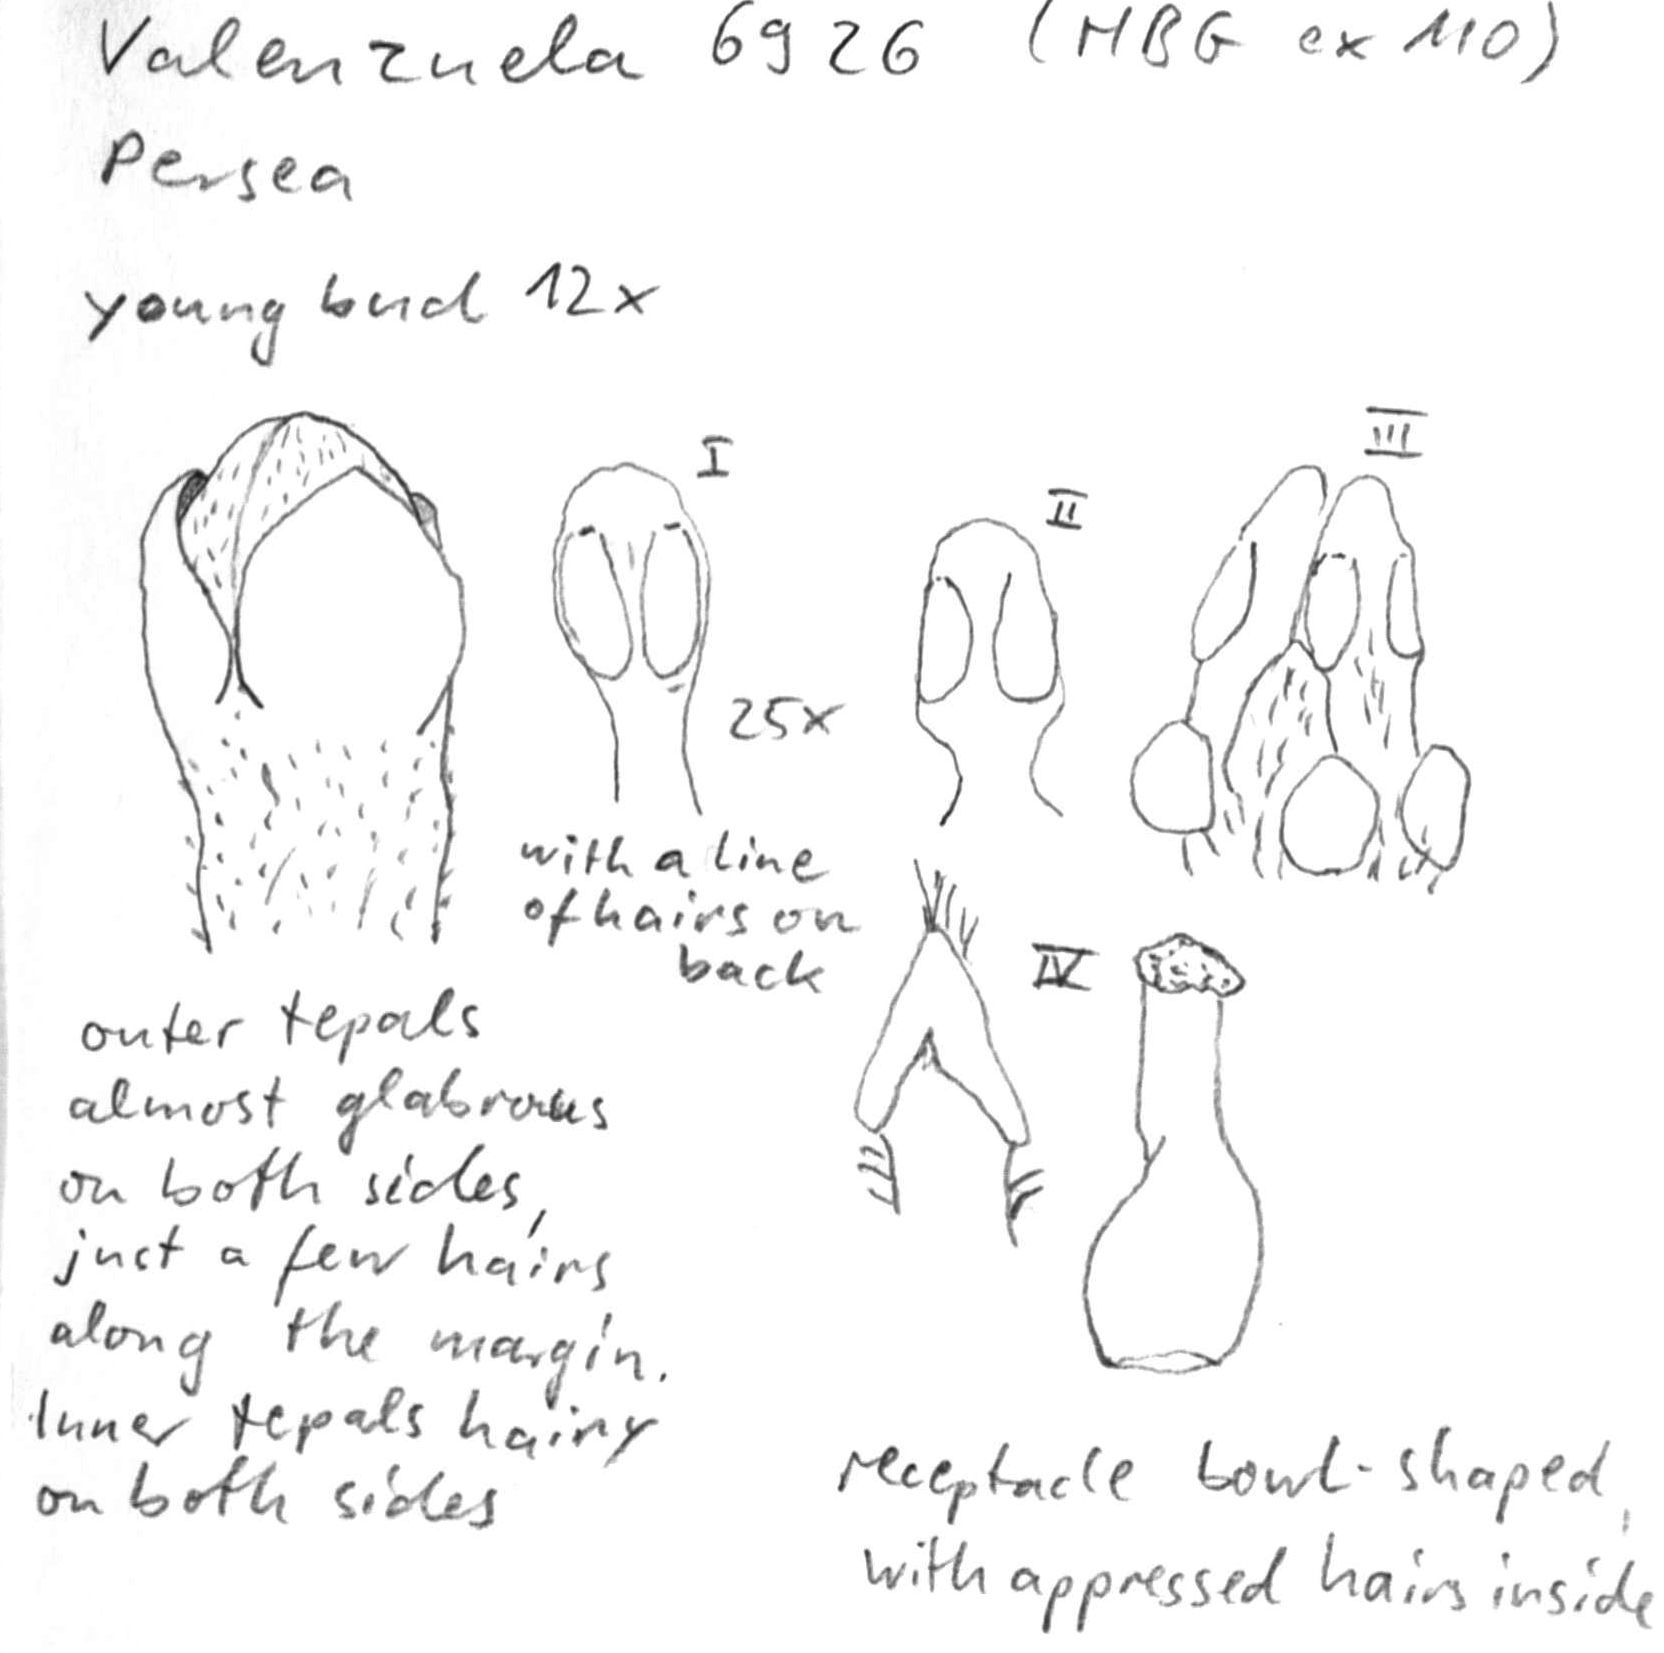 Valenzuela 6926 (HBG ex MO)
Persea
young bud 12x
I
II
III
25x
with a line
of hairs on
back
IV
outer tepals
almost glabrous
on both sides,
just a few hairs
along the margin.
Inner tepals hairy
on both sides
receptacle bowl-shaped,
with appressed hairs inside